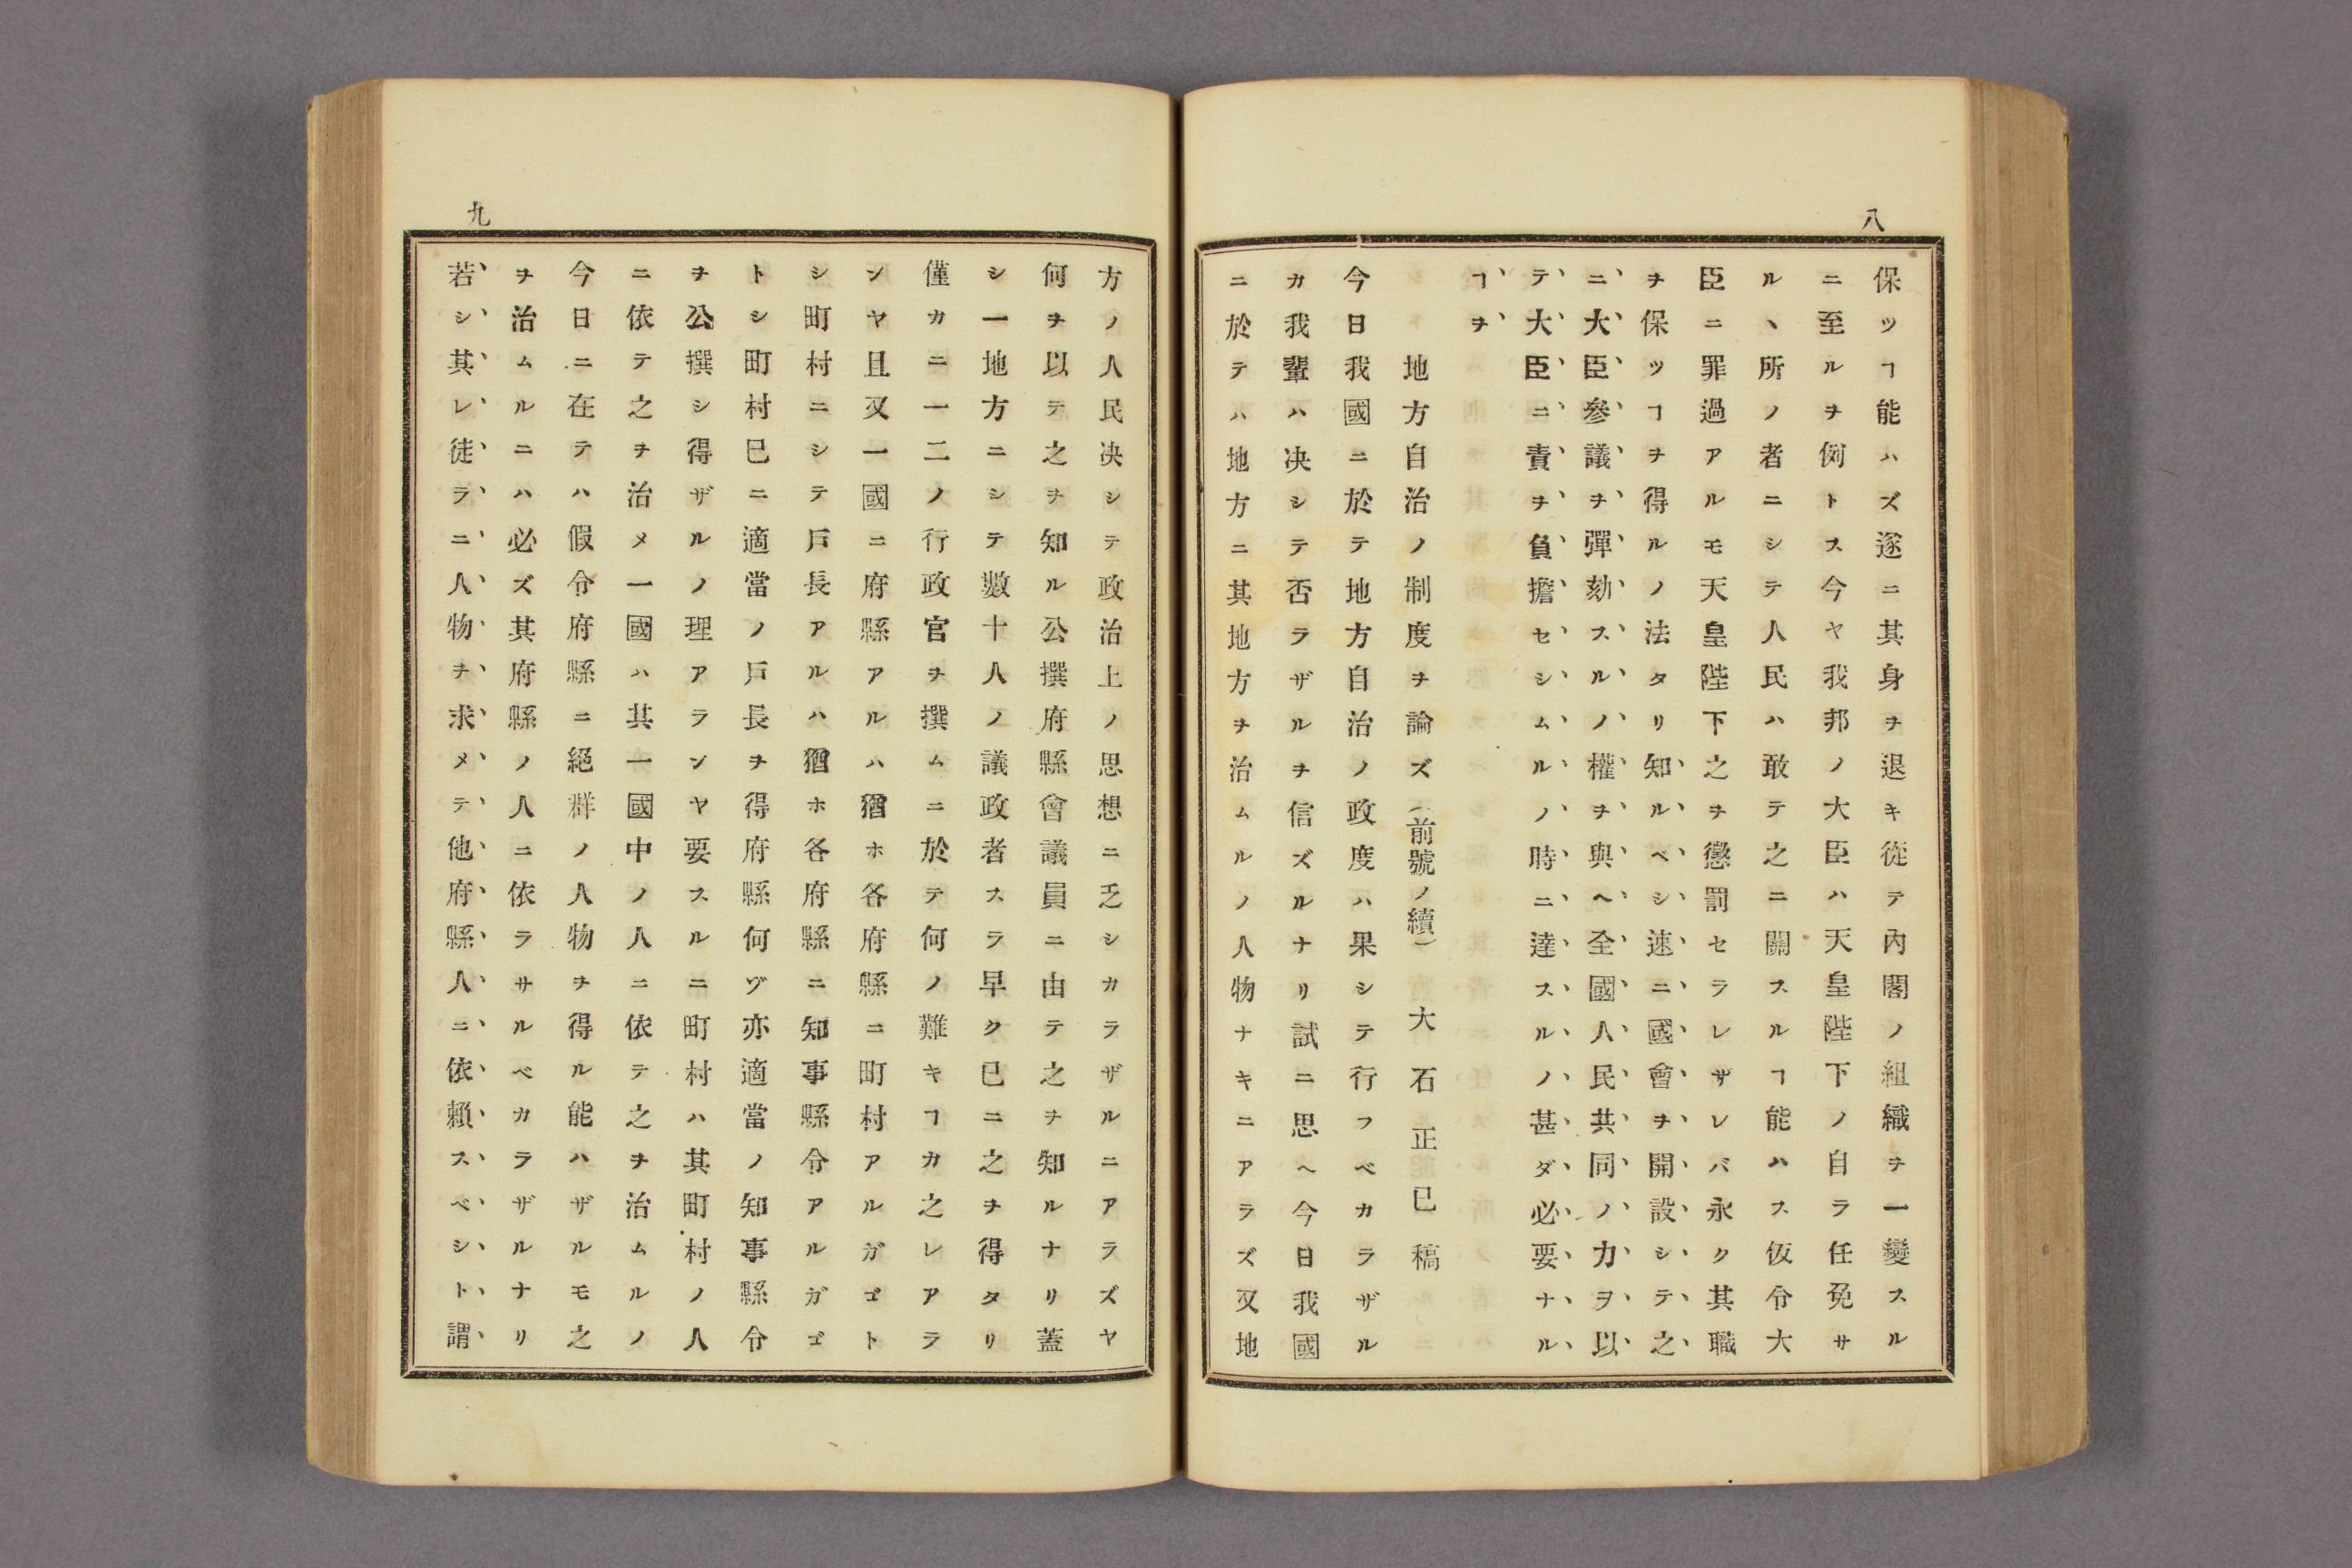 八
保ツヿ能ハズ遂ニ其身ヲ退キ從テ內閣ノ組織ヲ一變スル
ニ至ルヲ例トス今ヤ我邦ノ大臣ハ天皇陛下ノ自ラ任免サ
ルヽ所ノ者ニシテ人民ハ敢テ之ニ關スルヿ能ハス仮令大
臣ニ罪過アルモ天皇陛下之ヲ懲罰セラレザレバ永ク其職
ヲ保ツヿヲ得ルノ法タリ知ルベシ速ニ國會ヲ開設シテ之
ニ大臣參議ヲ彈劾スルノ權ヲ與ヘ全國人民共同ノ力ヲ以
テ大臣ニ責ヲ負擔セシムルノ時ニ達スルノ甚ダ必要ナル
ヿヲ
地方自治ノ制度ヲ論ズ(前號ノ續) 大石正巳稿
今日我國ニ於テ地方自治ノ政度ハ果シテ行フベカラザル
カ我輩ハ决シテ否ラザルヲ信ズルナリ試ニ思ヘ今日我國
ニ於テハ地方ニ其地方ヲ治ムルノ人物ナキニアラズ又地
九
方ノ人民决シテ政治上ノ思想ニ乏シカラザルニアラズヤ
何ヲ以テ之ヲ知ル公撰府縣會議員ニ由テ之ヲ知ルナリ蓋
シ一地方ニシテ數十人ノ議政者スラ早ク已ニ之ヲ得タリ
僅カニ一二ノ行政官ヲ撰ムニ於テ何ノ難キヿカ之レアラ
ンヤ且又一國ニ府縣アルハ猶ホ各府縣ニ町村アルガゴト
シ町村ニシテ戶長アルハ猶ホ各府縣ニ知事縣令アルガゴ
トシ町村已ニ適當ノ戶長ヲ得府縣何ヅ亦適當ノ知事縣令
ヲ公撰シ得ザルノ理アランヤ要スルニ町村ハ其町村ノ人
ニ依テ之ヲ治メ一國ハ其一國中ノ人ニ依テ之ヲ治ムルノ
今日ニ在テハ假令府縣ニ絕群ノ人物ヲ得ル能ハザルモ之
ヲ治ムルニハ必ズ其府縣ノ人ニ依ラサルベカラザルナリ
若シ其レ徒ラニ人物ヲ求メテ他府縣人ニ依賴スベシト謂